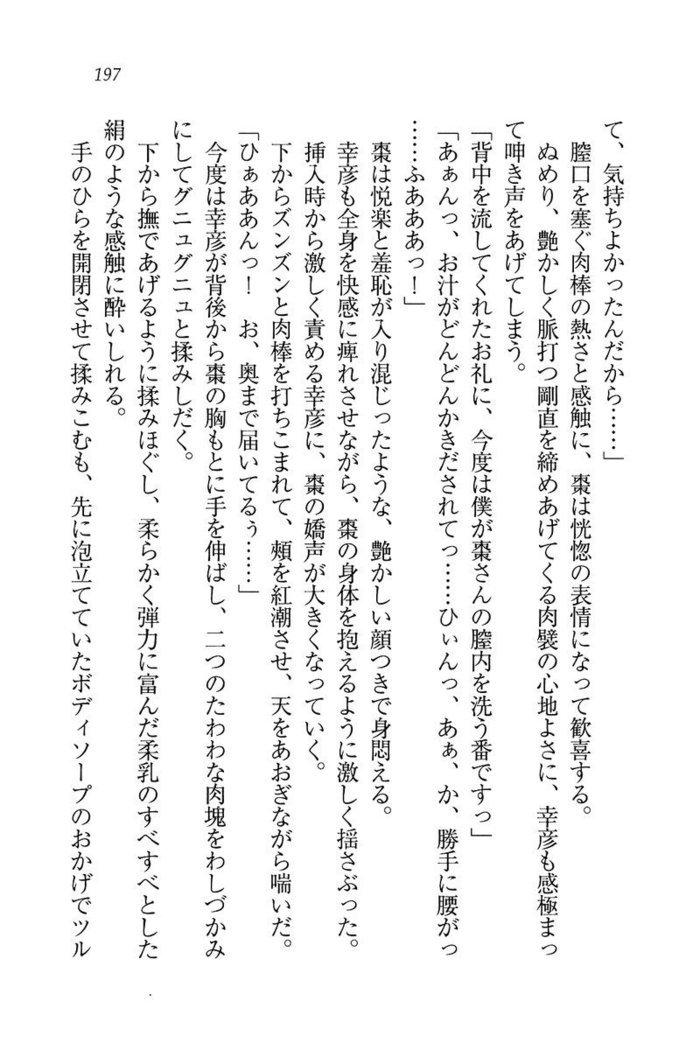 197
て、気持ちよかったんだから……」
　膣口を塞ぐ肉棒の熱さと感触に、棗は恍惚の表情になって歓喜する。
　ぬめり、艶かしく脈打つ剛直を締めあげてくる肉襞の心地よさに、幸彦も感極まっ
て呻き声をあげてしまう。
「背中を流してくれたお礼に、今度は僕が棗さんの膣内を洗う番ですっ」
「あぁんっ、お汁がどんどんかきだされてっ……ひぃんっ、あぁ、か、勝手に腰がっ
……ふあああっ！」
　棗は悦楽と羞恥が入り混じったような、艶かしい顔つきで身悶える。
　幸彦も全身を快感に痺れさせながら、棗の身体を抱えるように激しく揺さぶった。
　挿入時から激しく責める幸彦に、棗の嬌声が大きくなっていく。
　下からズンズンと肉棒を打ちこまれて、頰を紅潮させ、天をあおぎながら喘いだ。
「ひぁああんっ！　お、奥まで届いてるぅ……」
　今度は幸彦が背後から棗の胸もとに手を伸ばし、二つのたわわな肉塊をわしづかみ
にしてグニュグニュと揉みしだく。
　下から撫であげるように揉みほぐし、柔らかく弾力に富んだ柔乳のすべすべとした
絹のような感触に酔いしれる。
　手のひらを開閉させて揉みこむも、先に泡立てていたボディソープのおかげでツル